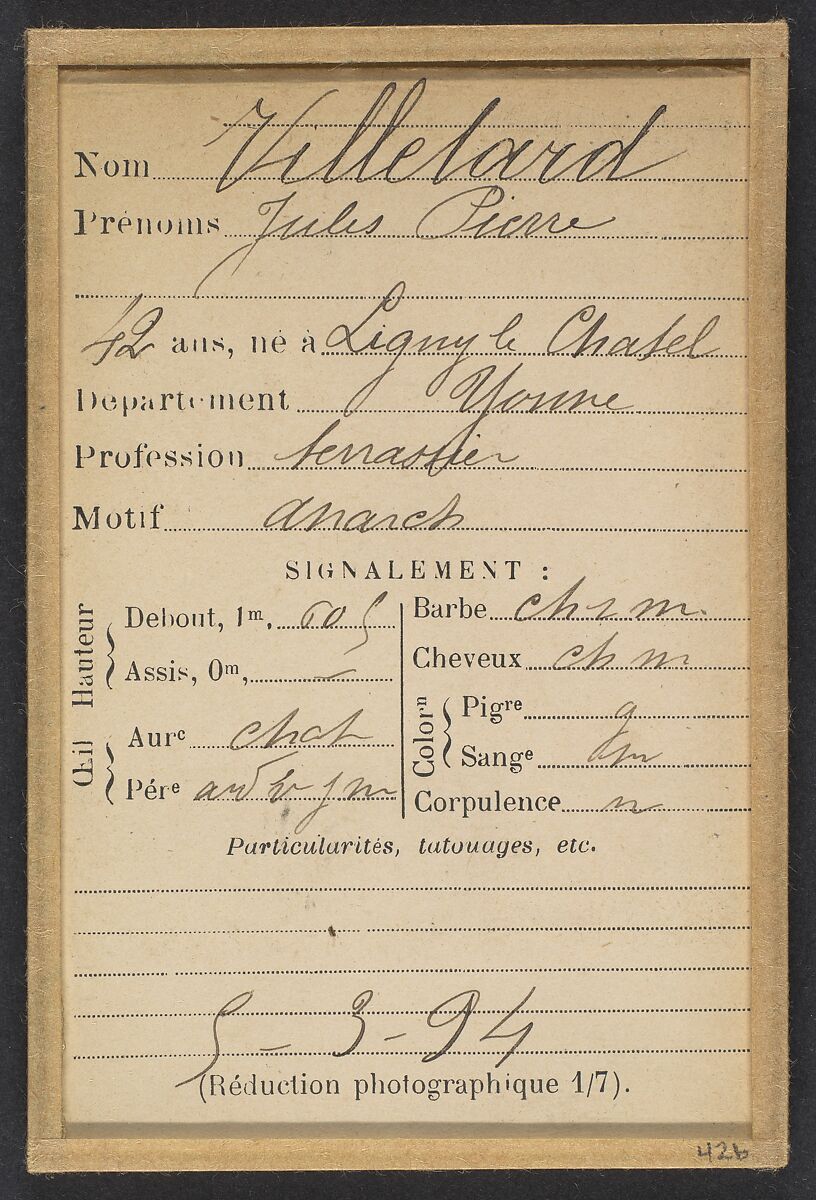 Nom Villetard
Prénoms Jules Pierre
42 ans, né à Ligny le Chatel
Département Yonne
Profession terrassier
Motif anarch
SIGNALEMENT :
Hauteur
Debout, 1m, 605
Assis, 0m, –
Œil
Aurc chat
Pére
Barbe
Cheveux ch m
Colorn
Pigre g
Sange m
Corpulence n
Particularités, tatouages, etc.
5 - 3 - 94
(Réduction photographique 1/7).
42b